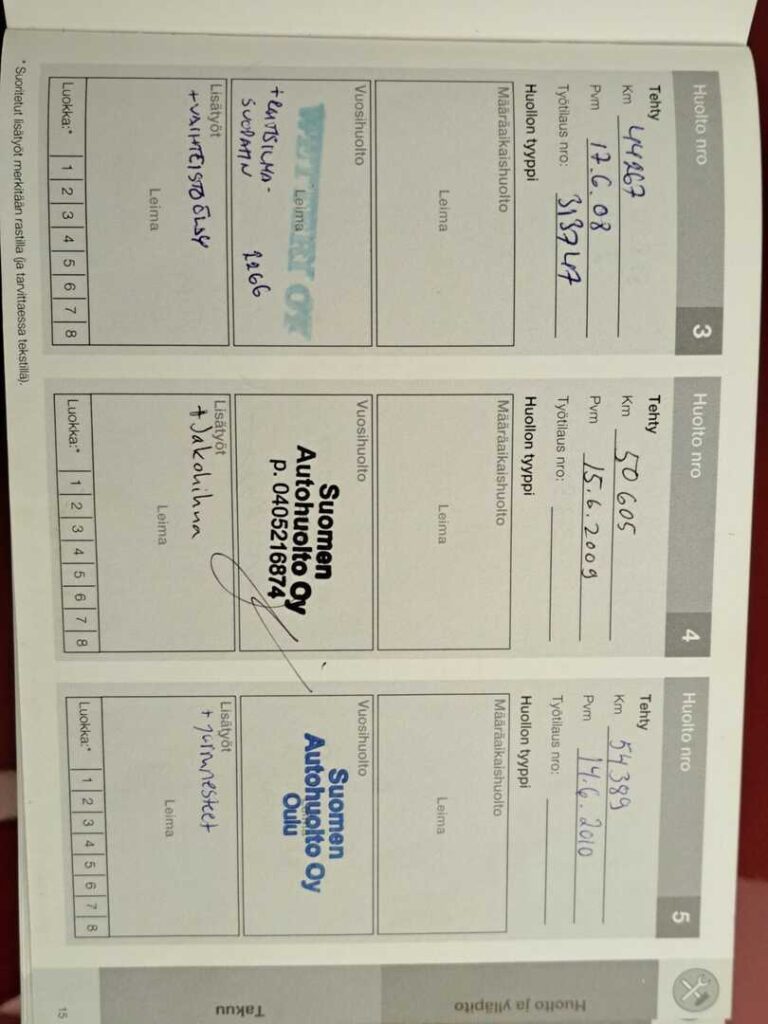 Huolto nro 3
Tehty
Km 44267
Pvm 17.6.08
Työtilaus nro: 313747
Huollon tyyppi
Määräaikaishuolto
Leima
Vuosihuolto
Leima
+ RAITISILMA-
SUODATIN 2266
Lisätyöt
+ VAIHTEISTOÖLJY
Leima
Luokka:* 1 2 3 4 5 6 7 8
Huolto nro 4
Tehty
Km 50605
Pvm 15.6.2009
Työtilaus nro:
Huollon tyyppi
Määräaikaishuolto
Leima
Vuosihuolto
Suomen
Autohuolto Oy
p. 0405216874
Lisätyöt
+ Jakohihna
Leima
Luokka:* 1 2 3 4 5 6 7 8
Huolto nro 5
Tehty
Km 54389
Pvm 14.6.2010
Työtilaus nro:
Huollon tyyppi
Määräaikaishuolto
Leima
Vuosihuolto
Suomen
Autohuolto Oy
Oulu
Lisätyöt
+ jarrunesteet
Leima
Luokka:* 1 2 3 4 5 6 7 8
* Suoritetut lisätyöt merkitään rastilla (ja tarvittaessa tekstillä).
Huolto ja ylläpito
Takuu
15